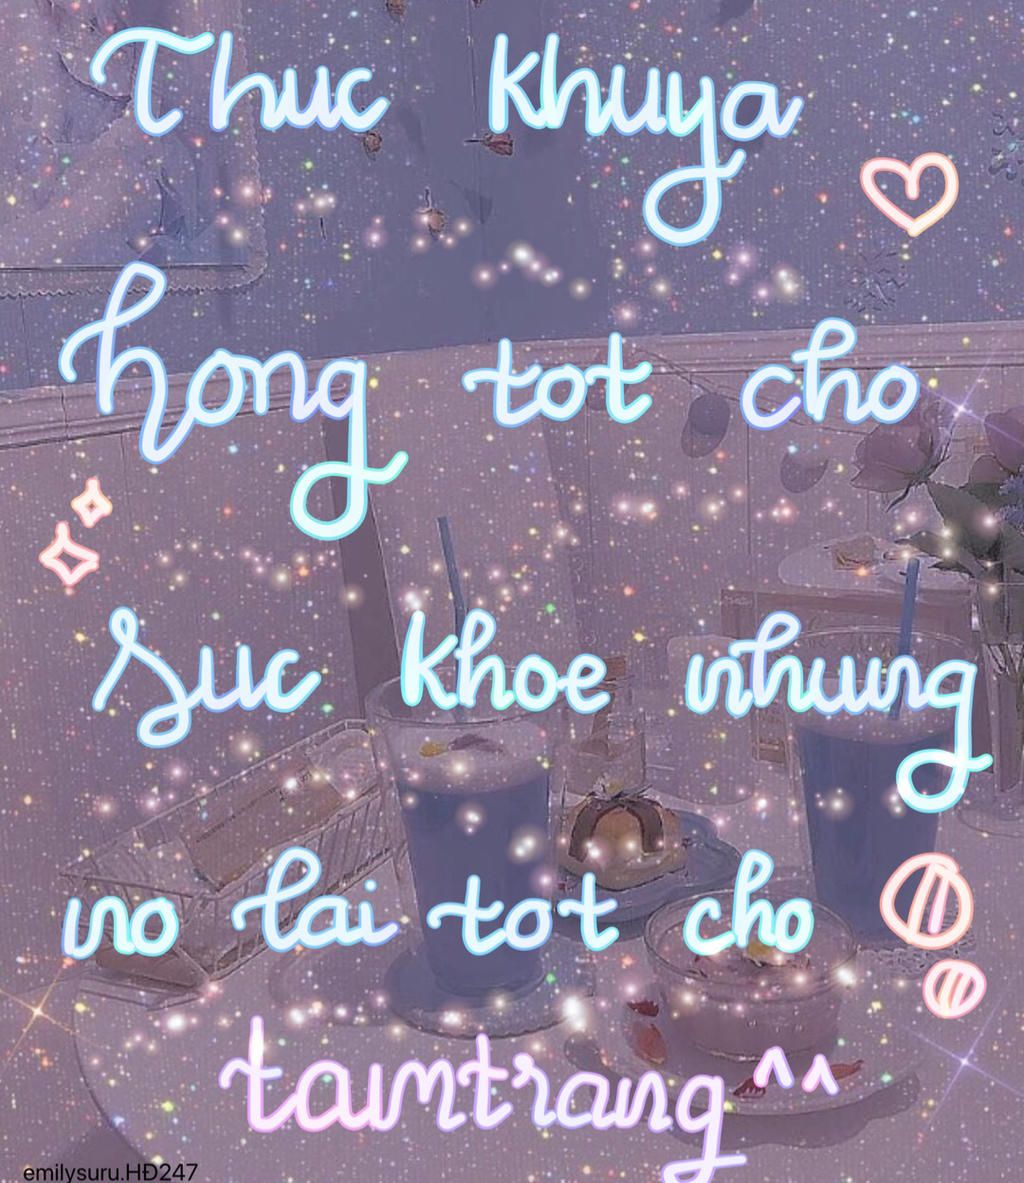 Thuc khuya
hong tot cho
suc khoe nhung
no lai tot cho
tamtrang ^^
emilysuru.HĐ247